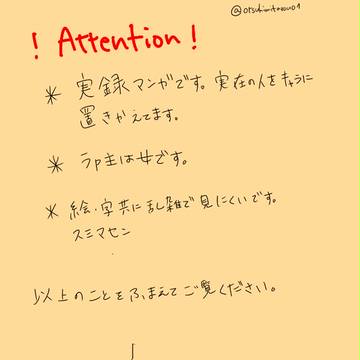 @otsukimitarou01
! Attention!
* 実録マンガです。実在の人をキャラに
置きかえてます。
* うp主は女です。
* 絵・字共に乱雑で見にくいです。
スミマセン
以上のことをふまえてご覧ください。